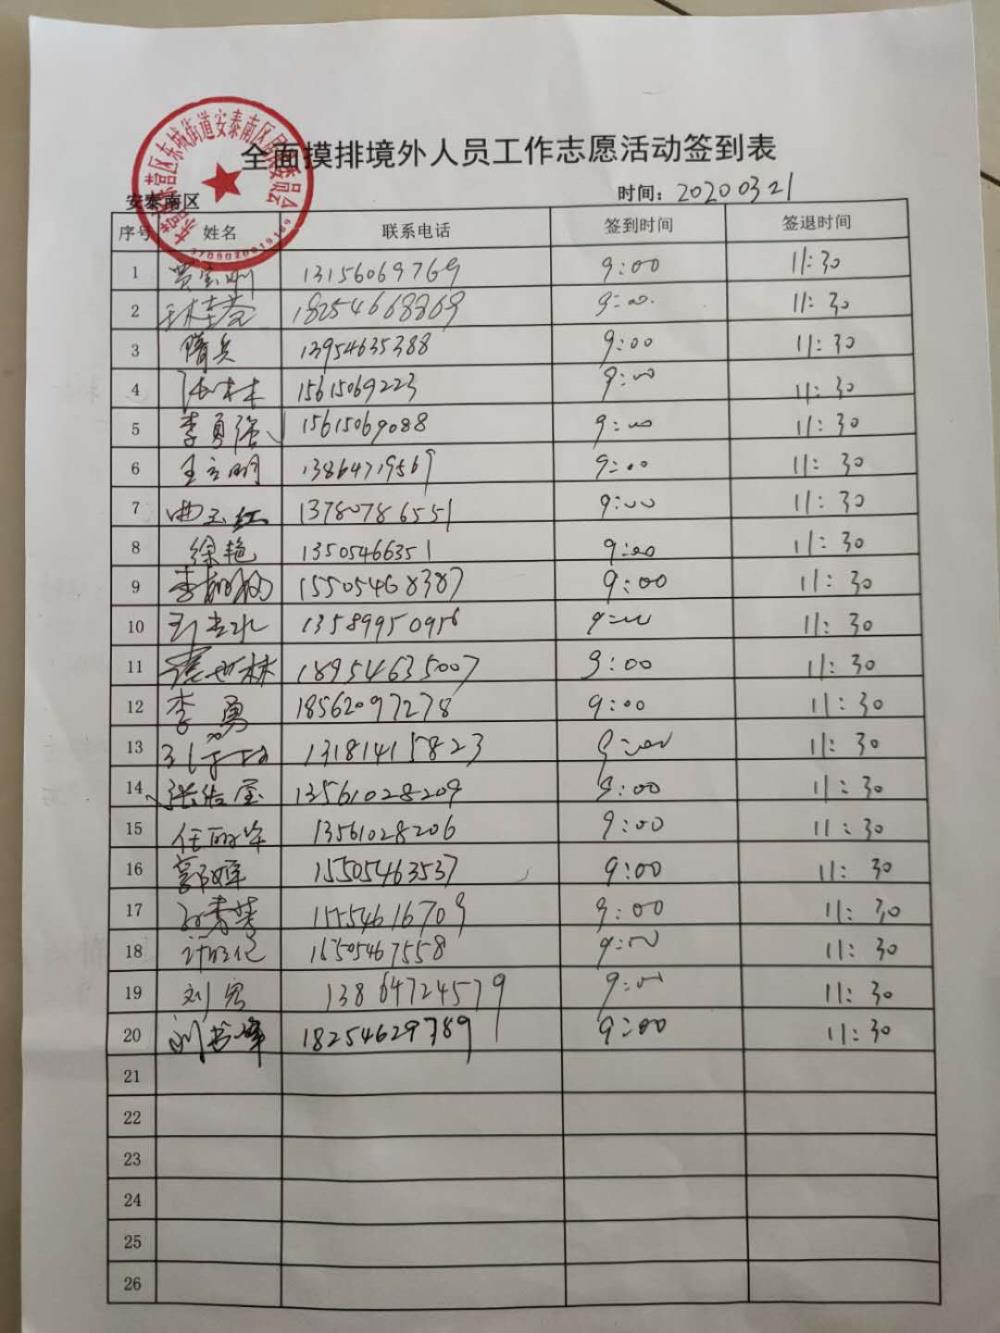 全面摸排境外人员工作志愿活动签到表
安泰南区 时间：20200321
序号 姓名 联系电话 签到时间 签退时间
1 13156069769 9:00 11:30
2 18254668369 9:00 11:30
3 隋兵 13954635388 9:00 11:30
4 15615069223 9:00 11:30
5 李勇强 15615069088 9:00 11:30
6 王立明 13864719569 9:00 11:30
7 曲玉红 13780786551 9:00 11:30
8 徐艳 13505466351 9:00 11:30
9 15505468387 9:00 11:30
10 13589950956 9:00 11:30
11 18954635007 9:00 11:30
12 李勇 18562097278 9:00 11:30
13 13181415823 9:00 11:30
14 13561028209 9:00 11:30
15 13561028206 9:00 11:30
16 15505463537 9:00 11:30
17 15554616709 9:00 11:30
18 15505467558 9:00 11:30
19 13864724579 9:00 11:30
20 18254629789 9:00 11:30
21
22
23
24
25
26